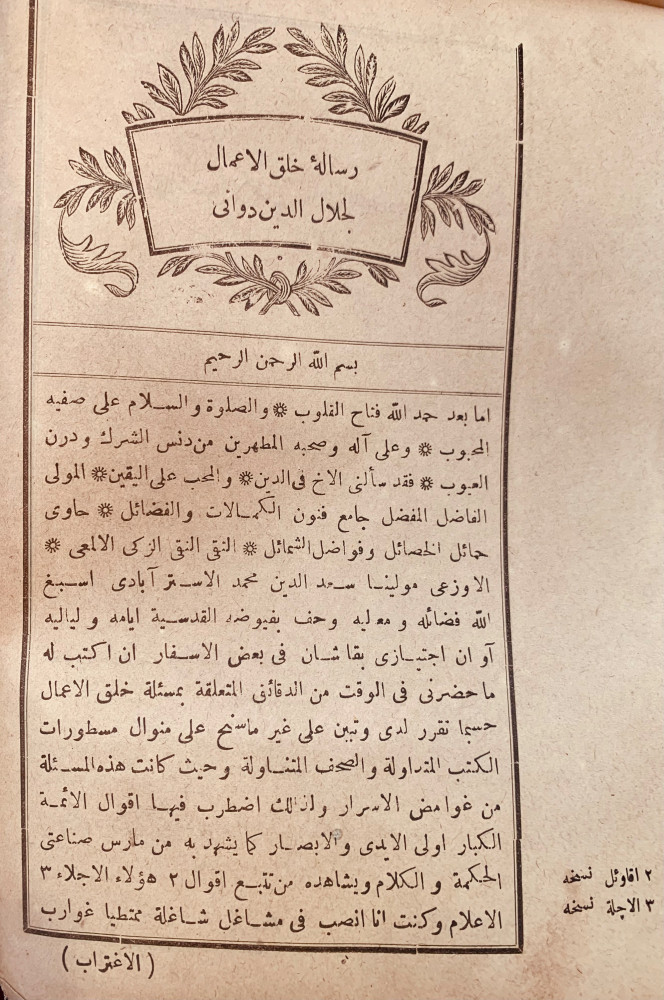 رسالهٔ خلق الاعمال
لجلال الدين دوانى
بسم الله الرحمن الرحيم
اما بعد حمد الله فتاح القلوب ۞ والصلوة والسلام على صفيه
المحبوب ۞ وعلى آله وصحبه المطهرين من دنس الشرك ودرن
العيوب ۞ فقد سألنى الاخ فى الدين ۞ والمحب على اليقين ۞ المولى
الفاضل المفضل جامع فنون الكمالات والفضائل ۞ حاوى
حمائل الخصائل وفواضل الشمائل ۞ التقى النقى الزكى الالمعى ۞
الاوزعى مولينا سعد الدين محمد الاستر آبادى اسبغ
الله فضائله ومعاليه وحف بفيوضه القدسية ايامه ولياليه
آو ان اجتيازى بقاشان فى بعض الاسفار ان اكتب له
ما حضرنى فى الوقت من الدقائق المتعلقة بمسئلة خلق الاعمال
حسبما تقرر لدى وتبين على غير ماسنح على منوال مسطورات
الكتب المتداولة والصحف المتناولة وحيث كانت هذه المسئلة
من غوامض الاسرار ولذلك اضطرب فيها اقوال الائمة
الكبار اولى الايدى والابصار كما يشهد به من مارس صناعتى
الحكمة والكلام ويشاهده من تتبع اقوال ٢ هؤلاء الاجلاء ٣
الاعلام وكنت انا انصب فى مشاغل شاغلة ممتطيا غوارب
(الاغتراب)
٢ اقاوئل نسخه
٣ الاجلة نسخه